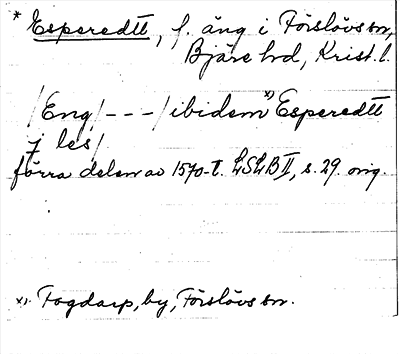 * Esperedtt, f. äng i Förslövs sn,
Bjäre hrd, Krist. l.
/Eng/ - - - /ibidem x) Esperedtt
j les/
förra delen av 1570-t. LSLB II, s. 29. orig.
x) Fogdarp, by, Förslövs sn.